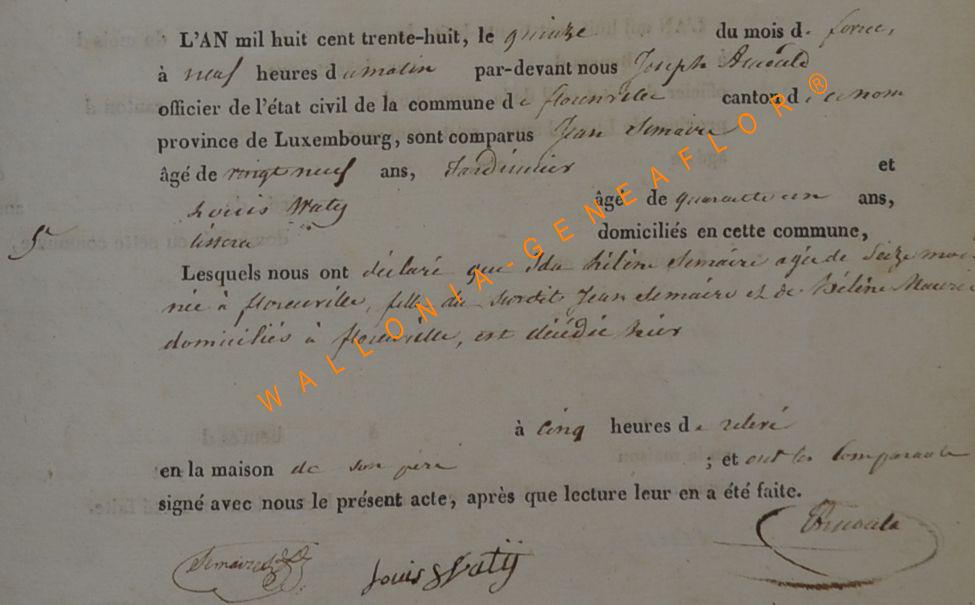 L'AN mil huit cent trente-huit, le quinze du mois de
à neuf heures du matin par-devant nous Joseph
officier de l'état civil de la commune de florenville canton de ce nom
province de Luxembourg, sont comparus Jean Lemaire
âgé de vingt neuf ans, Jardinier et
Louis Waty âgé de quarante un ans,
domiciliés en cette commune,
Lesquels nous ont déclaré que Ida hélène Lemaire agée de Seize mois
née à florenville, fille du susdit Jean Lemaire et de hélène
domiciliés à florenville, est décédée hier
à cinq heures de relevé
en la maison de son père ; et ont les Comparants
signé avec nous le présent acte, après que lecture leur en a été faite.
Lemaire Louis Watÿ
WALLONIA-GENEAFLOR ®